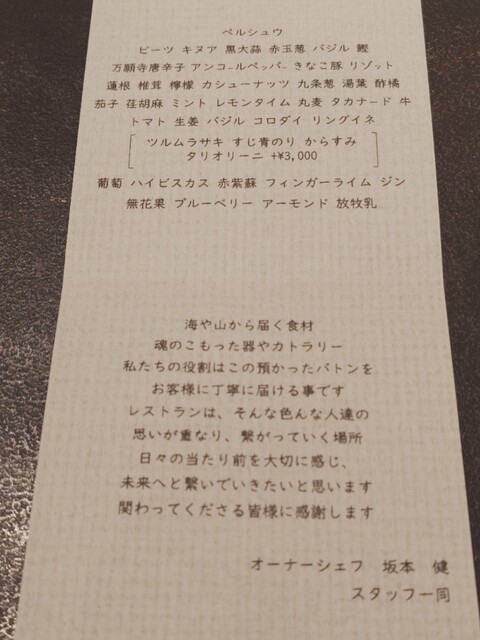 ペルシュウ
ビーツ キヌア 黒大蒜 赤玉葱 バジル 鰹
万願寺唐辛子 アンコールペッパー きなこ豚 リゾット
蓮根 椎茸 檸檬 カシューナッツ 九条葱 湯葉 酢橘
茄子 荏胡麻 ミント レモンタイム 丸麦 タカナード 牛
トマト 生姜 バジル コロダイ リングイネ
ツルムラサキ すじ青のり からすみ
タリオリーニ +¥3,000
葡萄 ハイビスカス 赤紫蘇 フィンガーライム ジン
無花果 ブルーベリー アーモンド 放牧乳
海や山から届く食材
魂のこもった器やカトラリー
私たちの役割はこの預かったバトンを
お客様に丁寧に届ける事です
レストランは、そんな色んな人達の
思いが重なり、繋がっていく場所
日々の当たり前を大切に感じ、
未来へと繋いでいきたいと思います
関わってくださる皆様に感謝します
オーナーシェフ 坂本 健
スタッフ一同